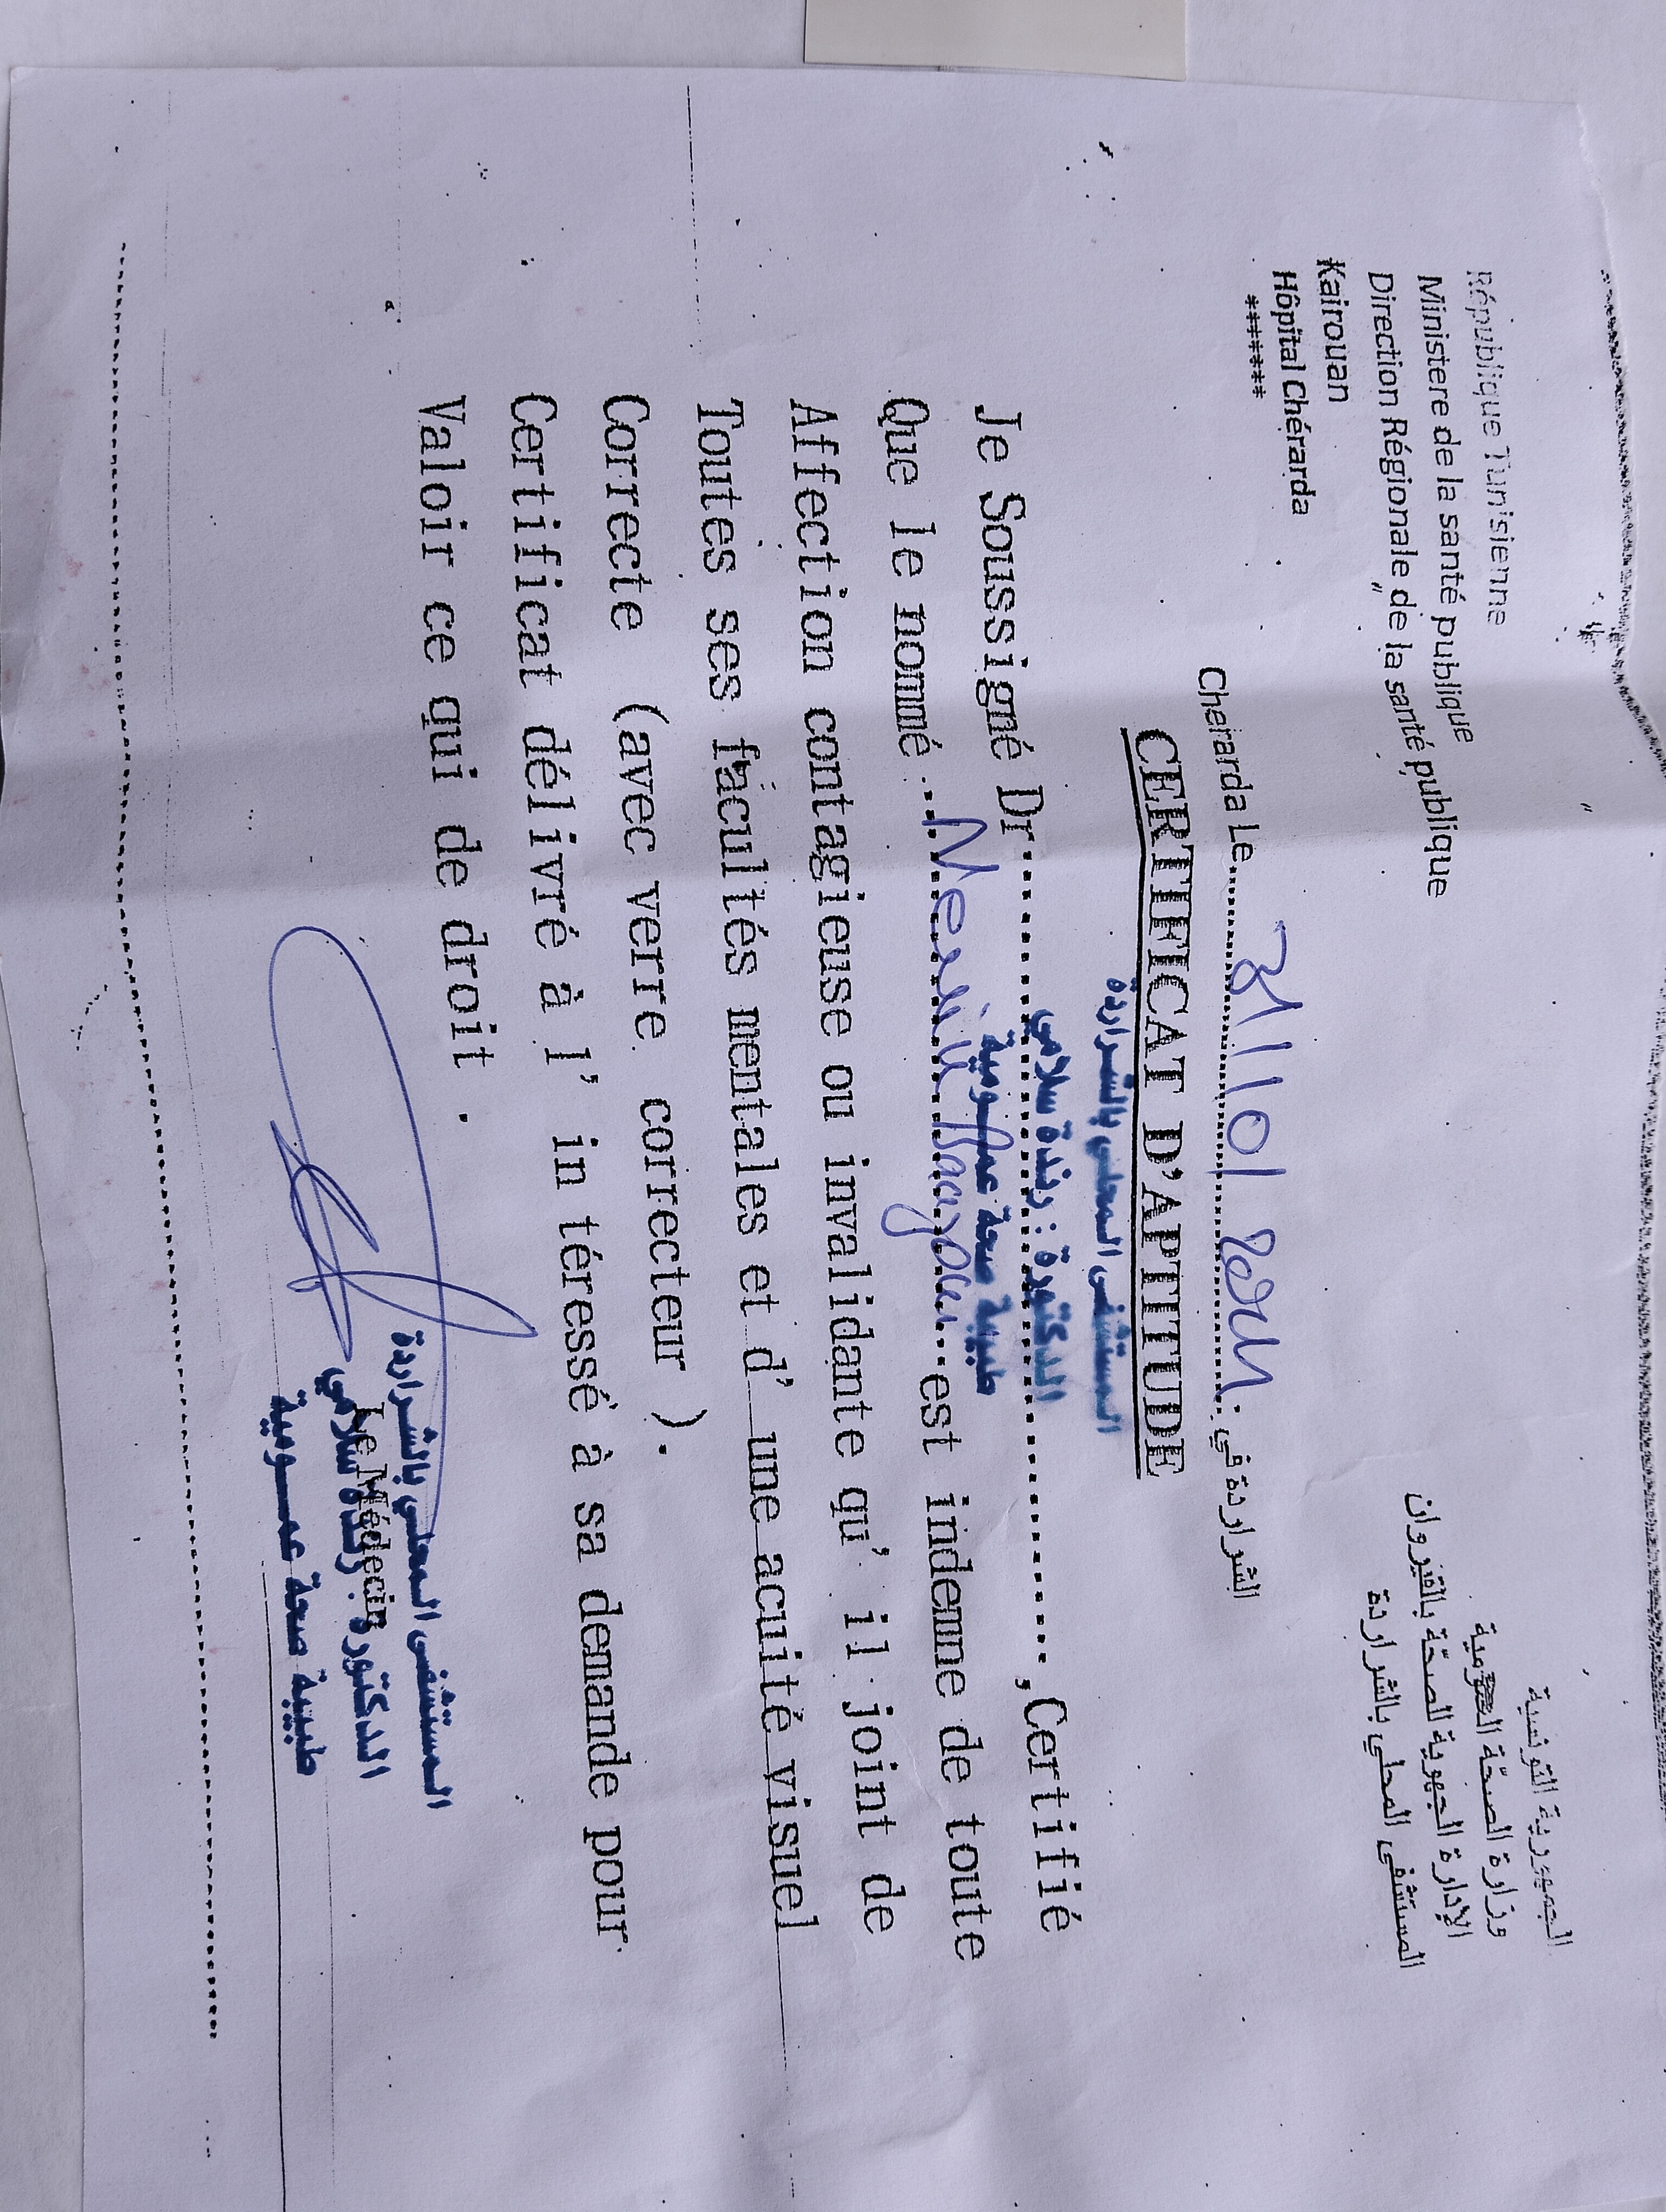 République Tunisienne
Ministere de la santé publique
Direction Régionale de la santé publique
Kairouan
Hôpital Chérarda
*******
الجمهورية التونسية
وزارة الصحّة العمومية
الإدارة الجهوية للصحّة بالقيروان
المستشفى المحلي بالشراردة
Cherarda Le.......... الشراردة في
CERTIFICAT D'APTITUDE
المستشفى المحلي بالشراردة
الدكتورة : رندة سلامي
طبيبة صحة عمومية
Je Soussigné Dr..........,Certifié
Que le nommé..........est indemne de toute
Affection contagieuse ou invalidante qu' il joint de
Toutes ses facultés mentales et d' une acuité visuel
Correcte (avec verre correcteur ).
Certificat délivré à l' in téressé à sa demande pour
Valoir ce qui de droit .
Le Médecin
المستشفى المحلي بالشراردة
الدكتورة : رندة سلامي
طبيبة صحة عمومية